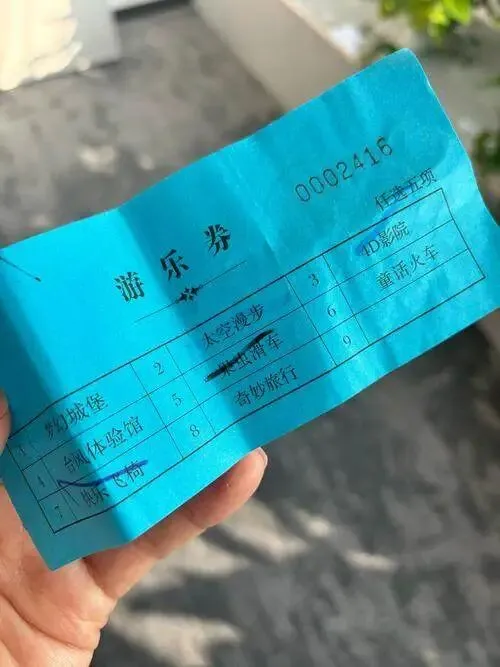 0002416
游乐券
任选五项
1 梦幻城堡 2 太空漫步 3 4D影院
4 台风体验馆 5 虫滑车 6 童话火车
7 快乐飞椅 8 奇妙旅行 9